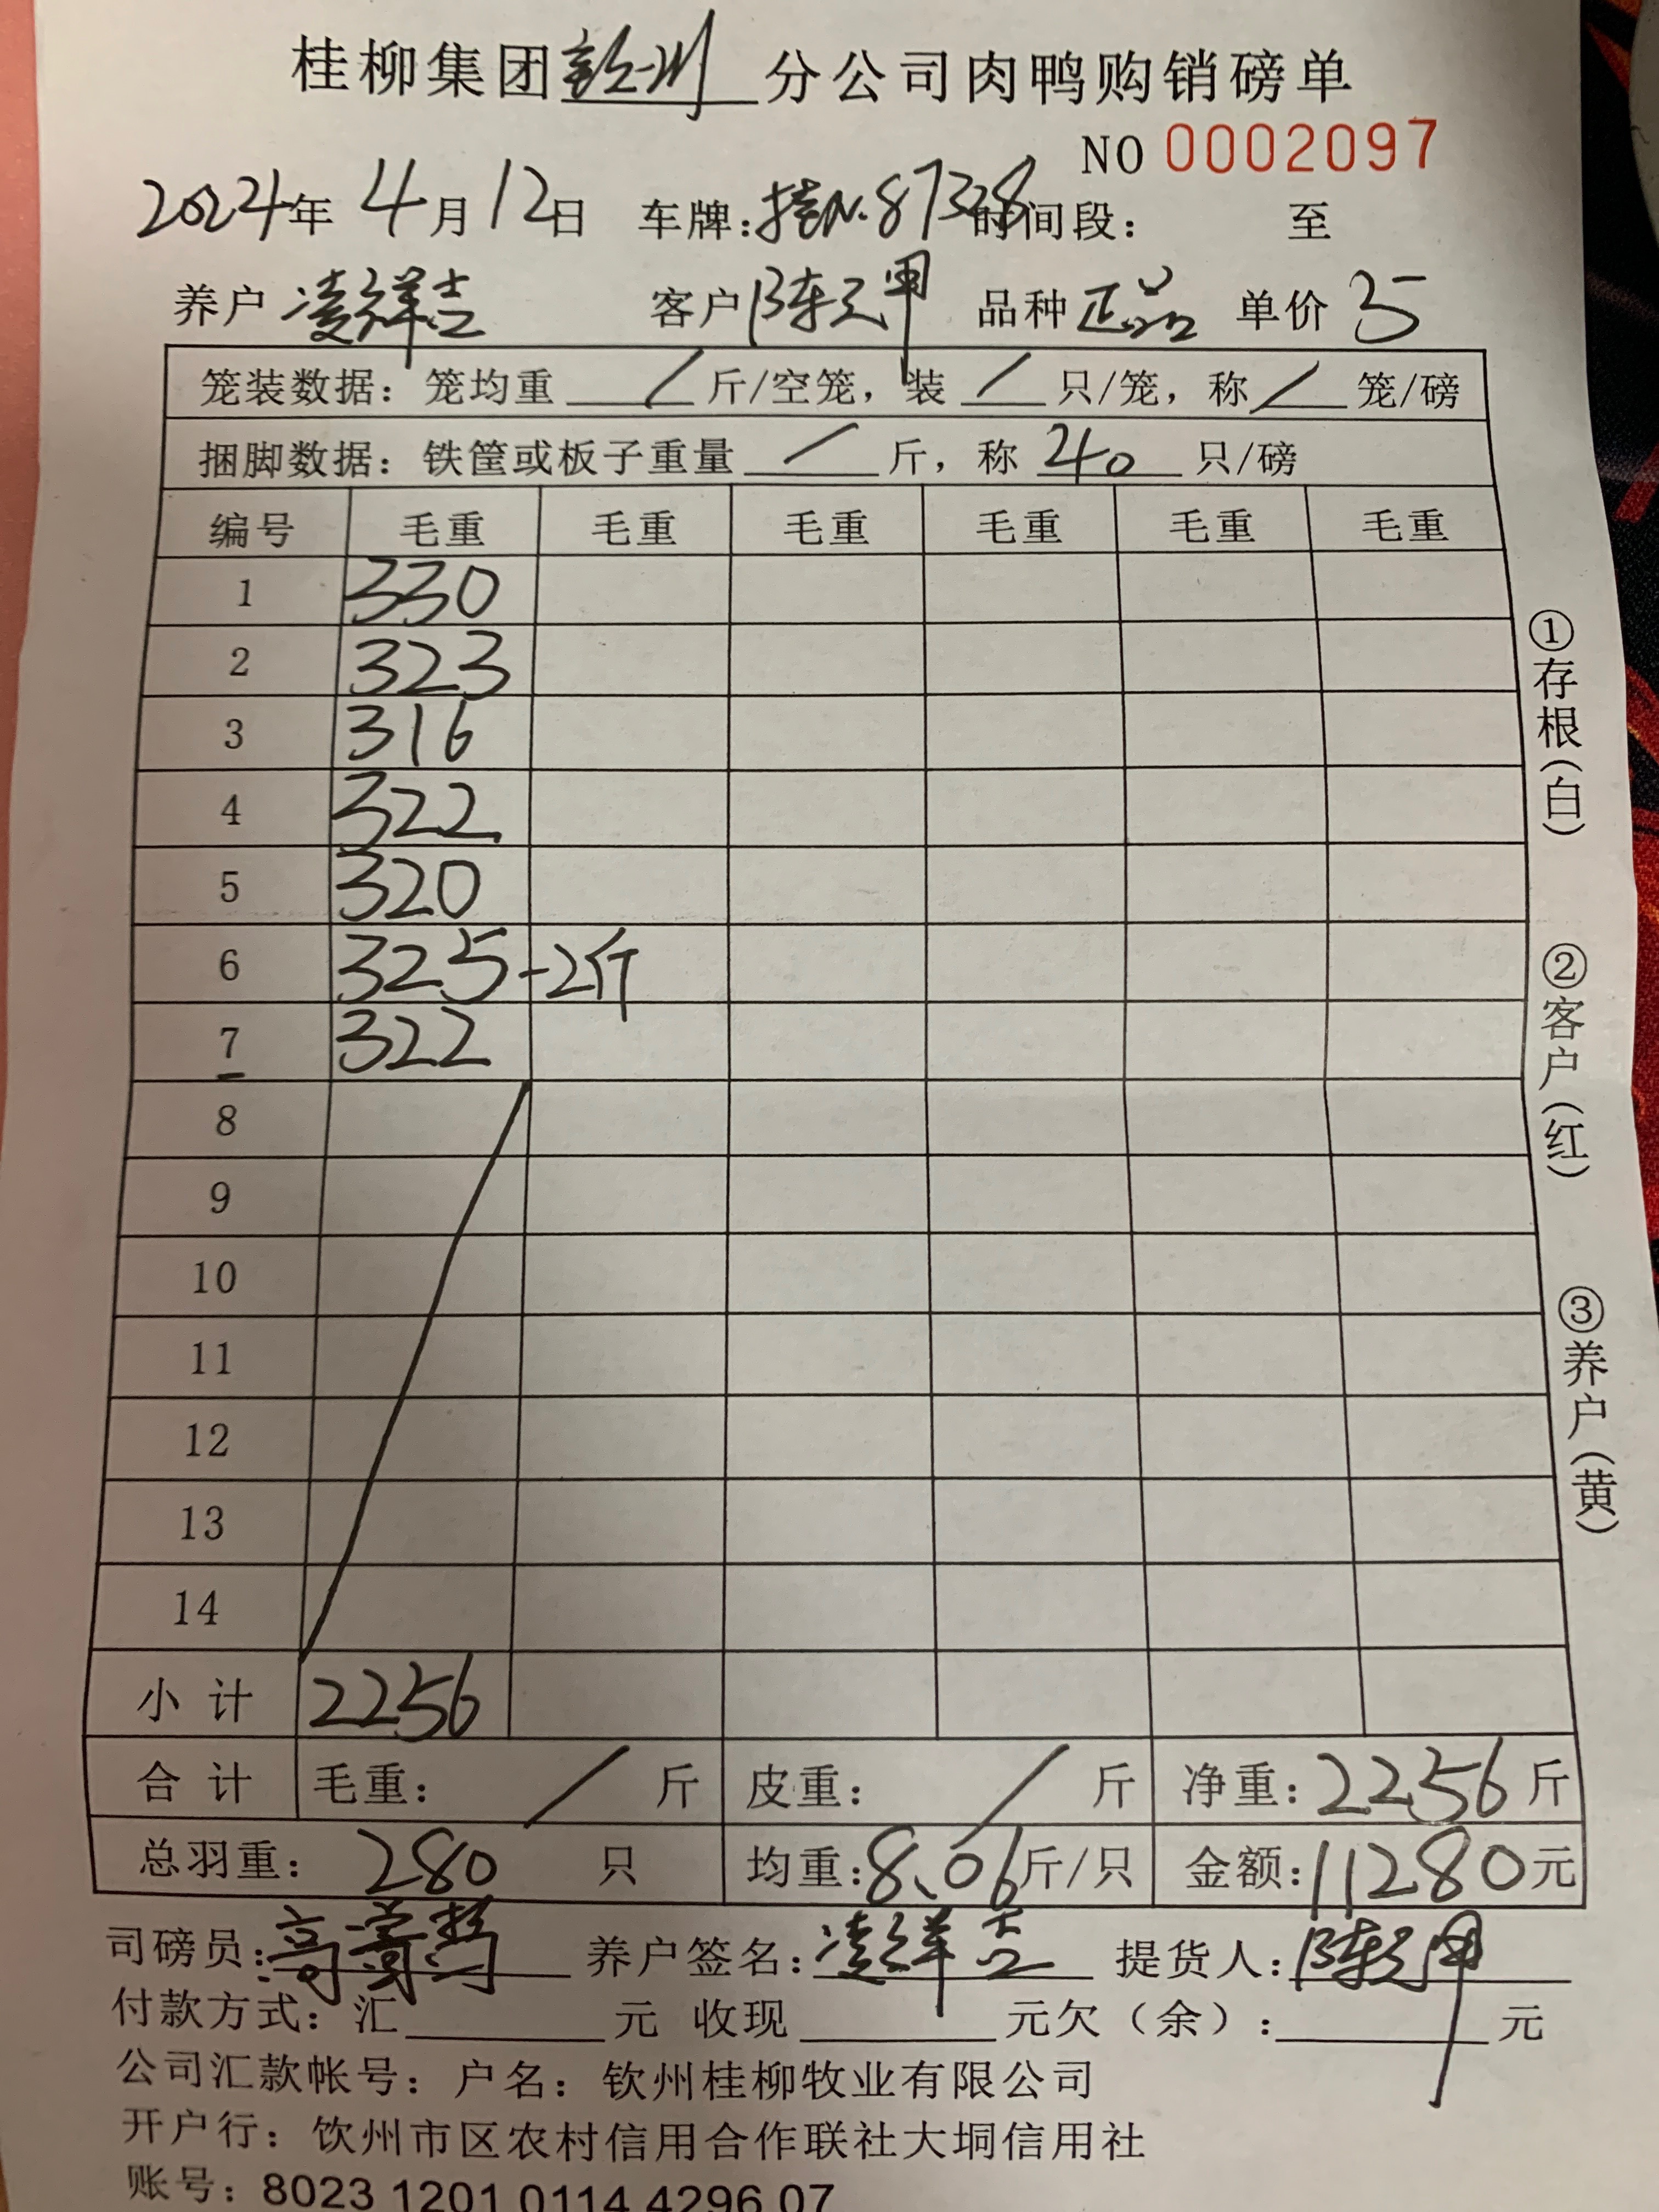 桂柳集团 分公司肉鸭购销磅单
NO 0002097
2024年 4月 12日 车牌:桂N.87328 时间段: 至
养户 凌祥吉 客户 陈 甲 品种 正品 单价 5
笼装数据: 笼均重 / 斤/空笼, 装 / 只/笼, 称 / 笼/磅
捆脚数据: 铁筐或板子重量 / 斤, 称 40 只/磅
编号 毛重 毛重 毛重 毛重 毛重 毛重
1 330
2 323
3 316
4 322
5 320
6 325 -2斤
7 322
8
9
10
11
12
13
14
小计 2256
合计 毛重: / 斤 皮重: / 斤 净重: 2256 斤
总羽重: 280 只 均重: 8.06 斤/只 金额: 11280 元
司磅员: 养户签名: 凌祥吉 提货人: 陈 甲
付款方式: 汇 元 收现 元欠(余): 元
公司汇款帐号: 户名: 钦州桂柳牧业有限公司
开户行: 钦州市区农村信用合作联社大垌信用社
账号: 8023 1201 0114 4296 07
①存根(白)
②客户(红)
③养户(黄)